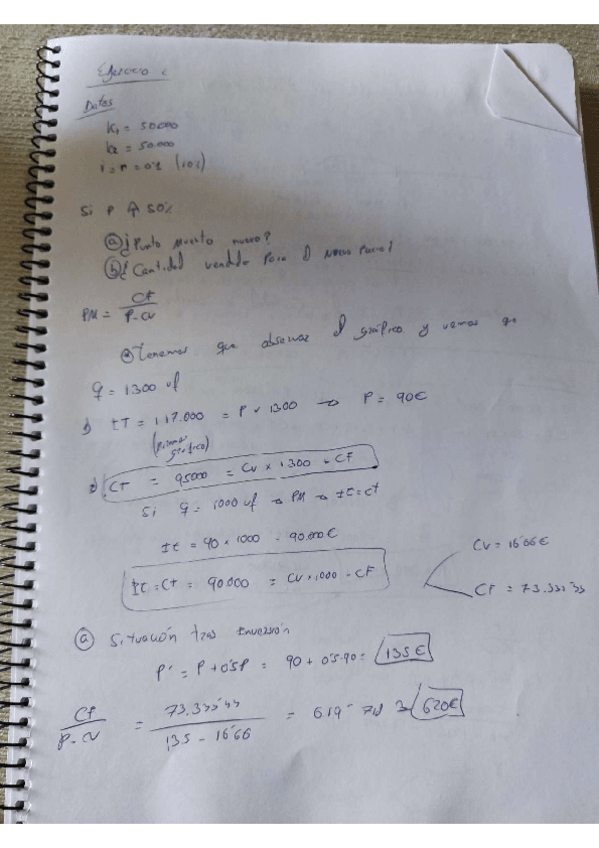 Ejercicio
Datos
K1 = 50000
K2 = 50.000
i = r = 0'1 (10%)
Si P ↑ 50%
ⓐ ¿Punto muerto nuevo?
ⓑ ¿Cantidad vendida para el nuevo punto?
PM = CF / P - CV
Tenemos que observar el gráfico y vemos que
q = 1300 uf
1) IT = 117.000 = P x 1300 → P = 90€
(primer gráfico)
2) CT = 95000 = CV x 1300 + CF
Si q = 1000 uf → PM → IT = CT
IT = 90 x 1000 = 90.000€
IT = CT = 90.000 = CV x 1000 + CF
CV = 16'66€
CF = 73.33333
ⓐ Situación tras inversión
P' = P + 0'5P = 90 + 0'5·90 = 135€
CF / P - CV = 73.333'33 / 135 - 16'66 = 619' 620€